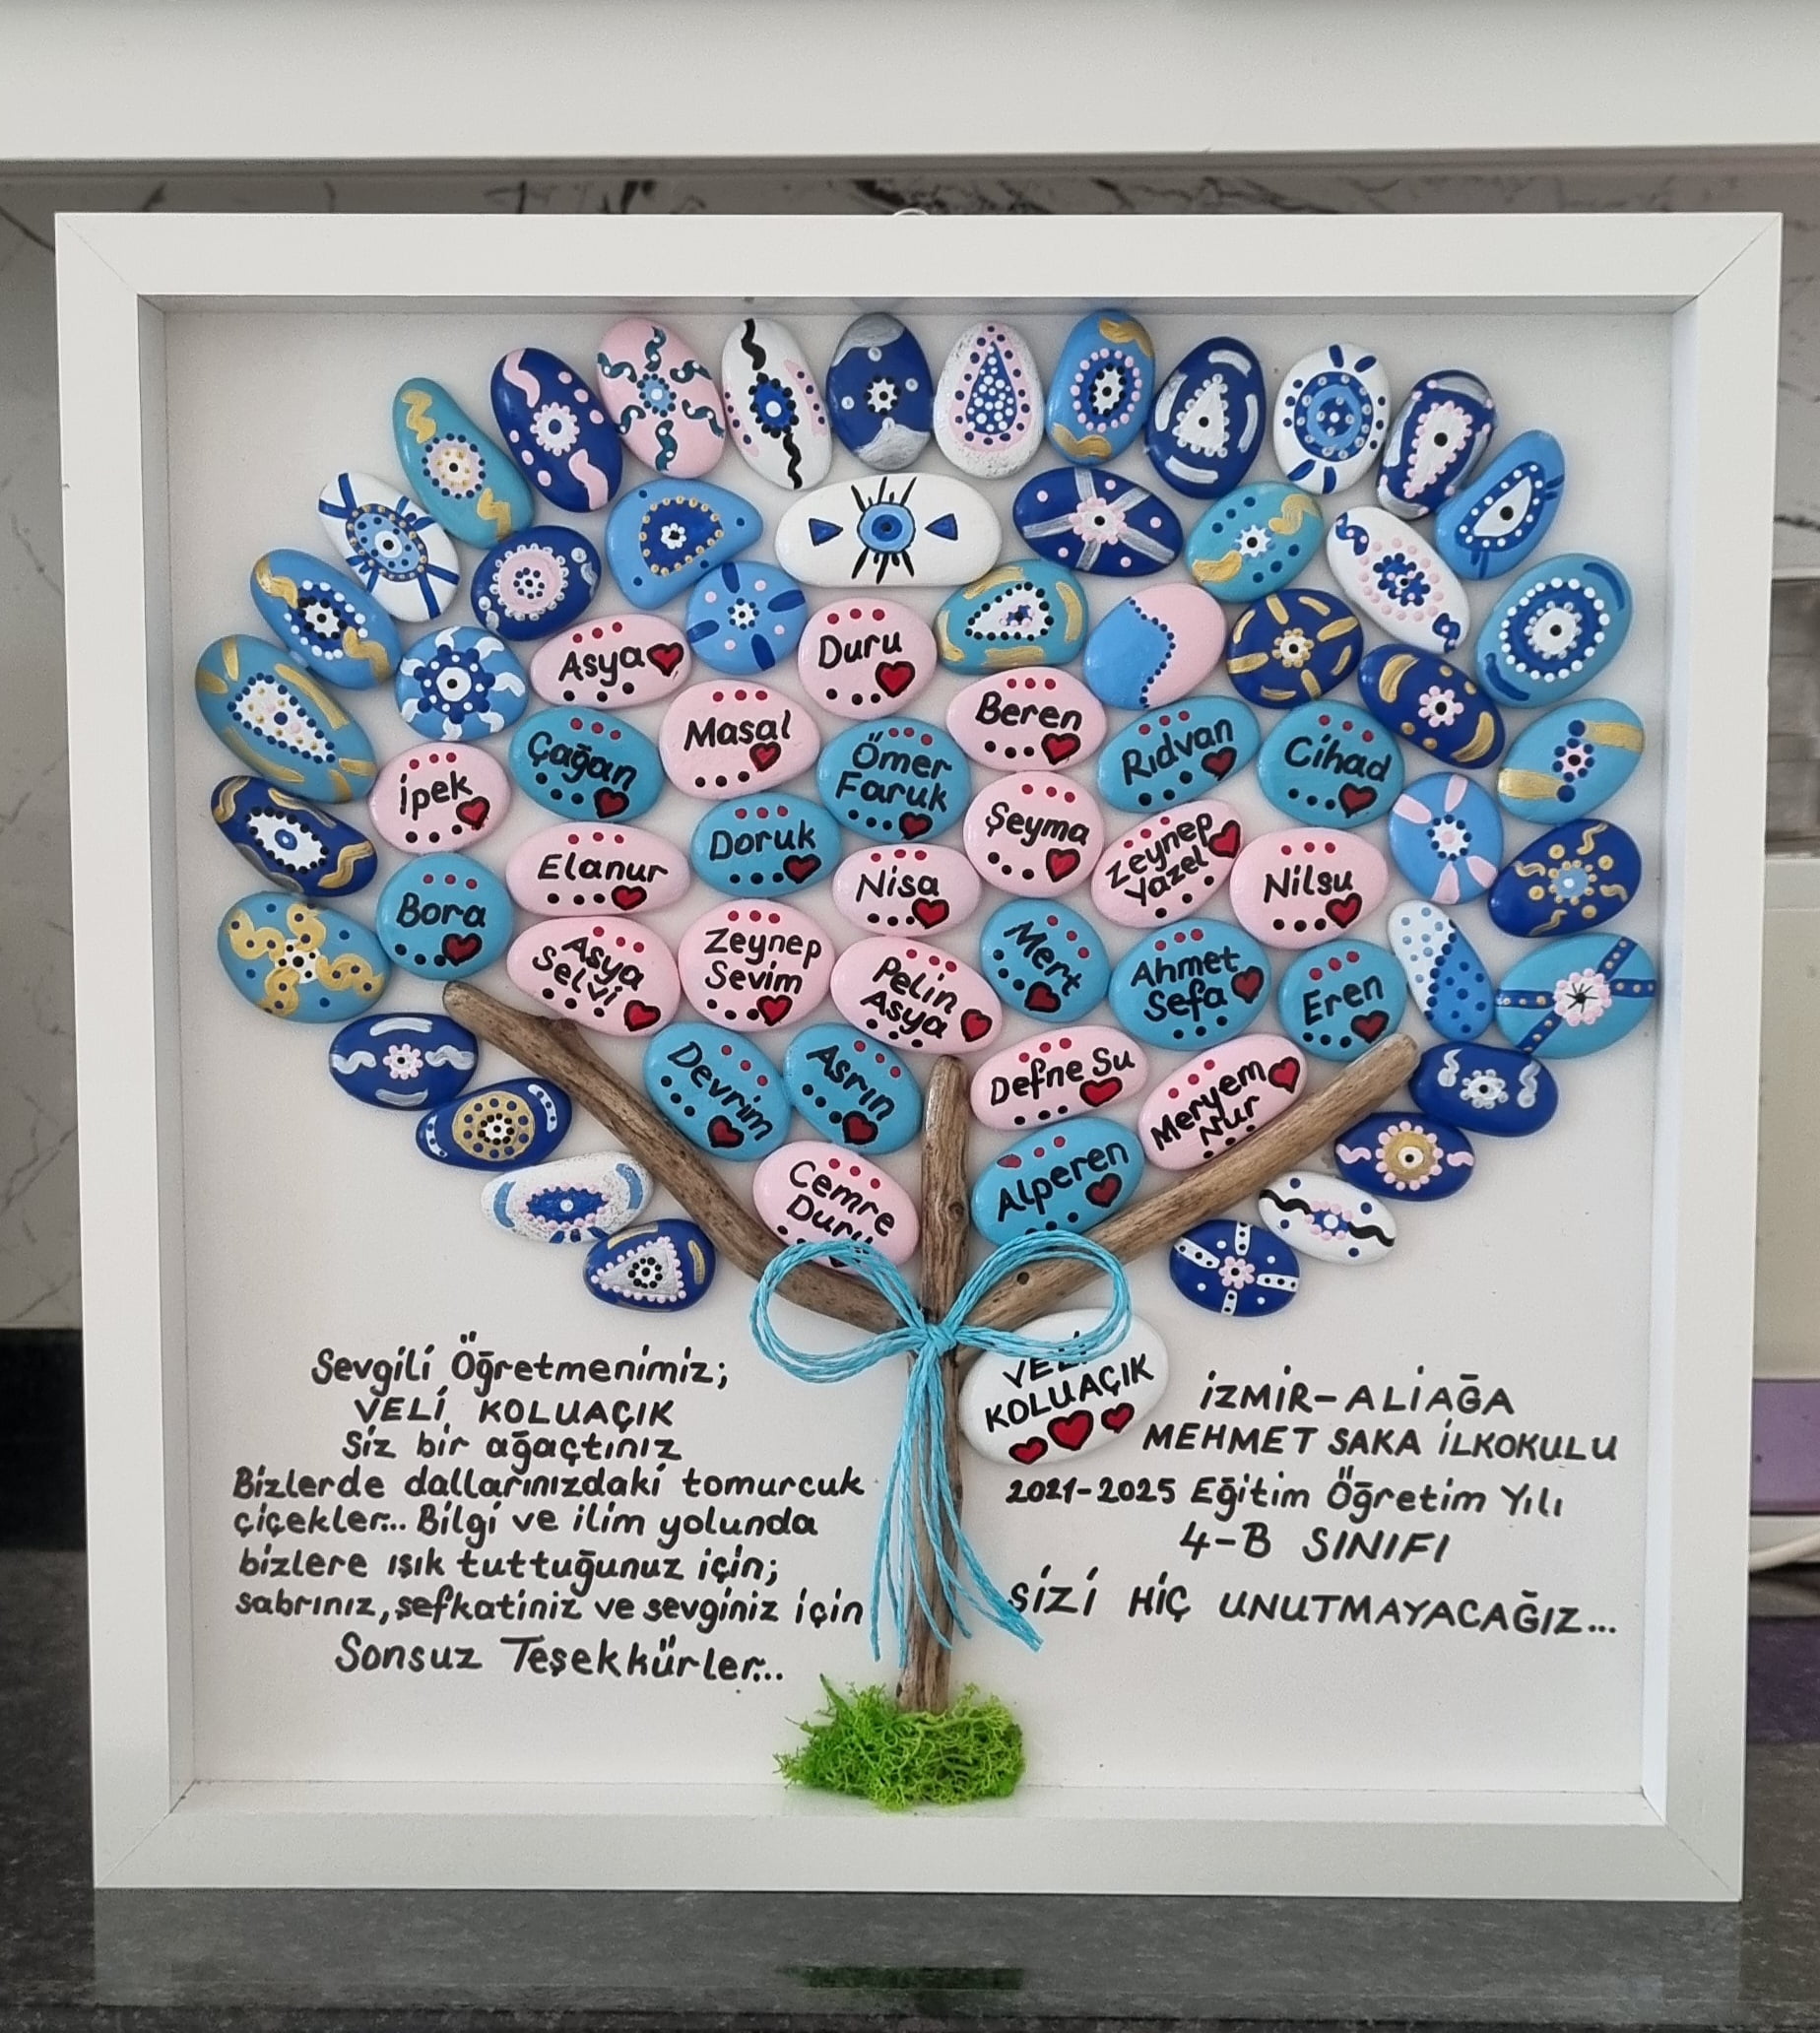 Asya
Duru
Masal
Beren
Çağan
Ömer
Faruk
Rıdvan
Cihad
İpek
Doruk
Şeyma
Zeynep
Yazel
Elanur
Nisa
Nilsu
Bora
Asya
Selvi
Zeynep
Sevim
Pelin
Asya
Mert
Ahmet
Sefa
Eren
Devrim
Asrın
Defne Su
Meryem
Nur
Cemre
Duru
Alperen
VELİ
KOLUAÇIK
Sevgili Öğretmenimiz;
VELİ KOLUAÇIK
Siz bir ağaçtınız
Bizlerde dallarınızdaki tomurcuk
çiçekler... Bilgi ve ilim yolunda
bizlere ışık tuttuğunuz için;
sabrınız, şefkatiniz ve sevginiz için
Sonsuz Teşekkürler...
İZMİR-ALİAĞA
MEHMET SAKA İLKOKULU
2021-2025 Eğitim Öğretim Yılı
4-B SINIFI
SİZİ HİÇ UNUTMAYACAĞIZ...